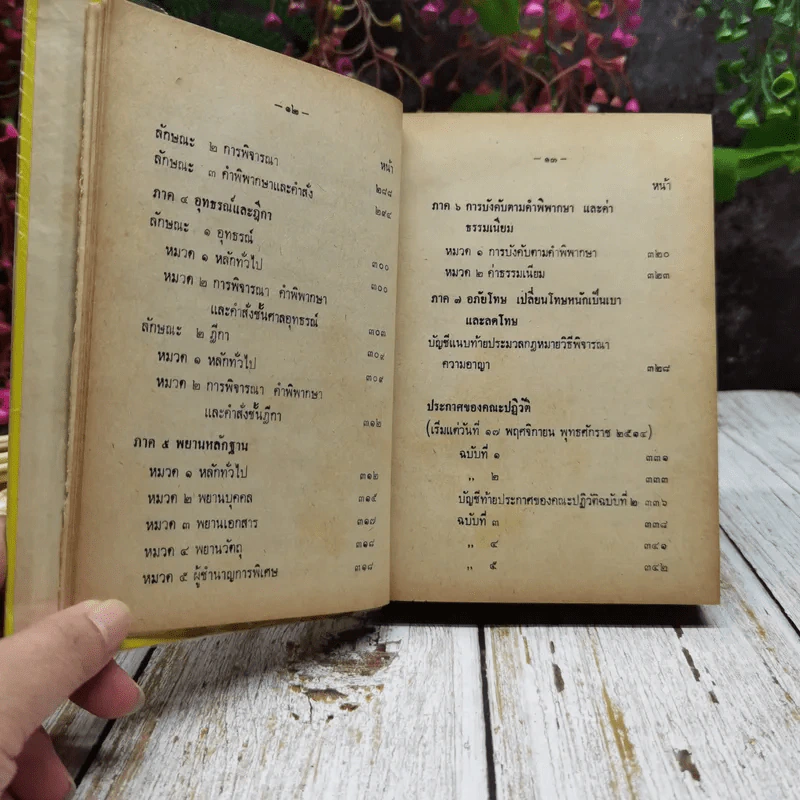 – ๑๒ –
หน้า
ลักษณะ ๒ การพิจารณา ๒๘๘
ลักษณะ ๓ คำพิพากษาและคำสั่ง ๒๙๔
ภาค ๔ อุทธรณ์และฎีกา
ลักษณะ ๑ อุทธรณ์
หมวด ๑ หลักทั่วไป ๓๐๐
หมวด ๒ การพิจารณา คำพิพากษา ๓๐๐
และคำสั่งชั้นศาลอุทธรณ์ ๓๐๓
ลักษณะ ๒ ฎีกา
หมวด ๑ หลักทั่วไป ๓๐๔
หมวด ๒ การพิจารณา คำพิพากษา ๓๐๙
และคำสั่งชั้นฎีกา ๓๑๒
ภาค ๕ พยานหลักฐาน
หมวด ๑ หลักทั่วไป ๓๑๒
หมวด ๒ พยานบุคคล ๓๑๕
หมวด ๓ พยานเอกสาร ๓๑๗
หมวด ๔ พยานวัตถุ ๓๑๘
หมวด ๕ ผู้ชำนาญการพิเศษ ๓๑๘
– ๑๓ –
หน้า
ภาค ๖ การบังคับตามคำพิพากษา และค่า
ธรรมเนียม
หมวด ๑ การบังคับตามคำพิพากษา ๓๒๐
หมวด ๒ ค่าธรรมเนียม ๓๒๓
ภาค ๗ อภัยโทษ เปลี่ยนโทษหนักเป็นเบา
และลดโทษ
บัญชีแนบท้ายประมวลกฎหมายวิธีพิจารณา
ความอาญา ๓๒๘
ประกาศของคณะปฏิวัติ
(เริ่มแต่วันที่ ๑๗ พฤศจิกายน พุทธศักราช ๒๕๑๔)
ฉบับที่ ๑ ๓๓๑
,, ๒ ๓๓๓
บัญชีท้ายประกาศของคณะปฏิวัติฉบับที่ ๒ ๓๓๖
ฉบับที่ ๓ ๓๓๘
,, ๔ ๓๔๑
,, ๕ ๓๔๒